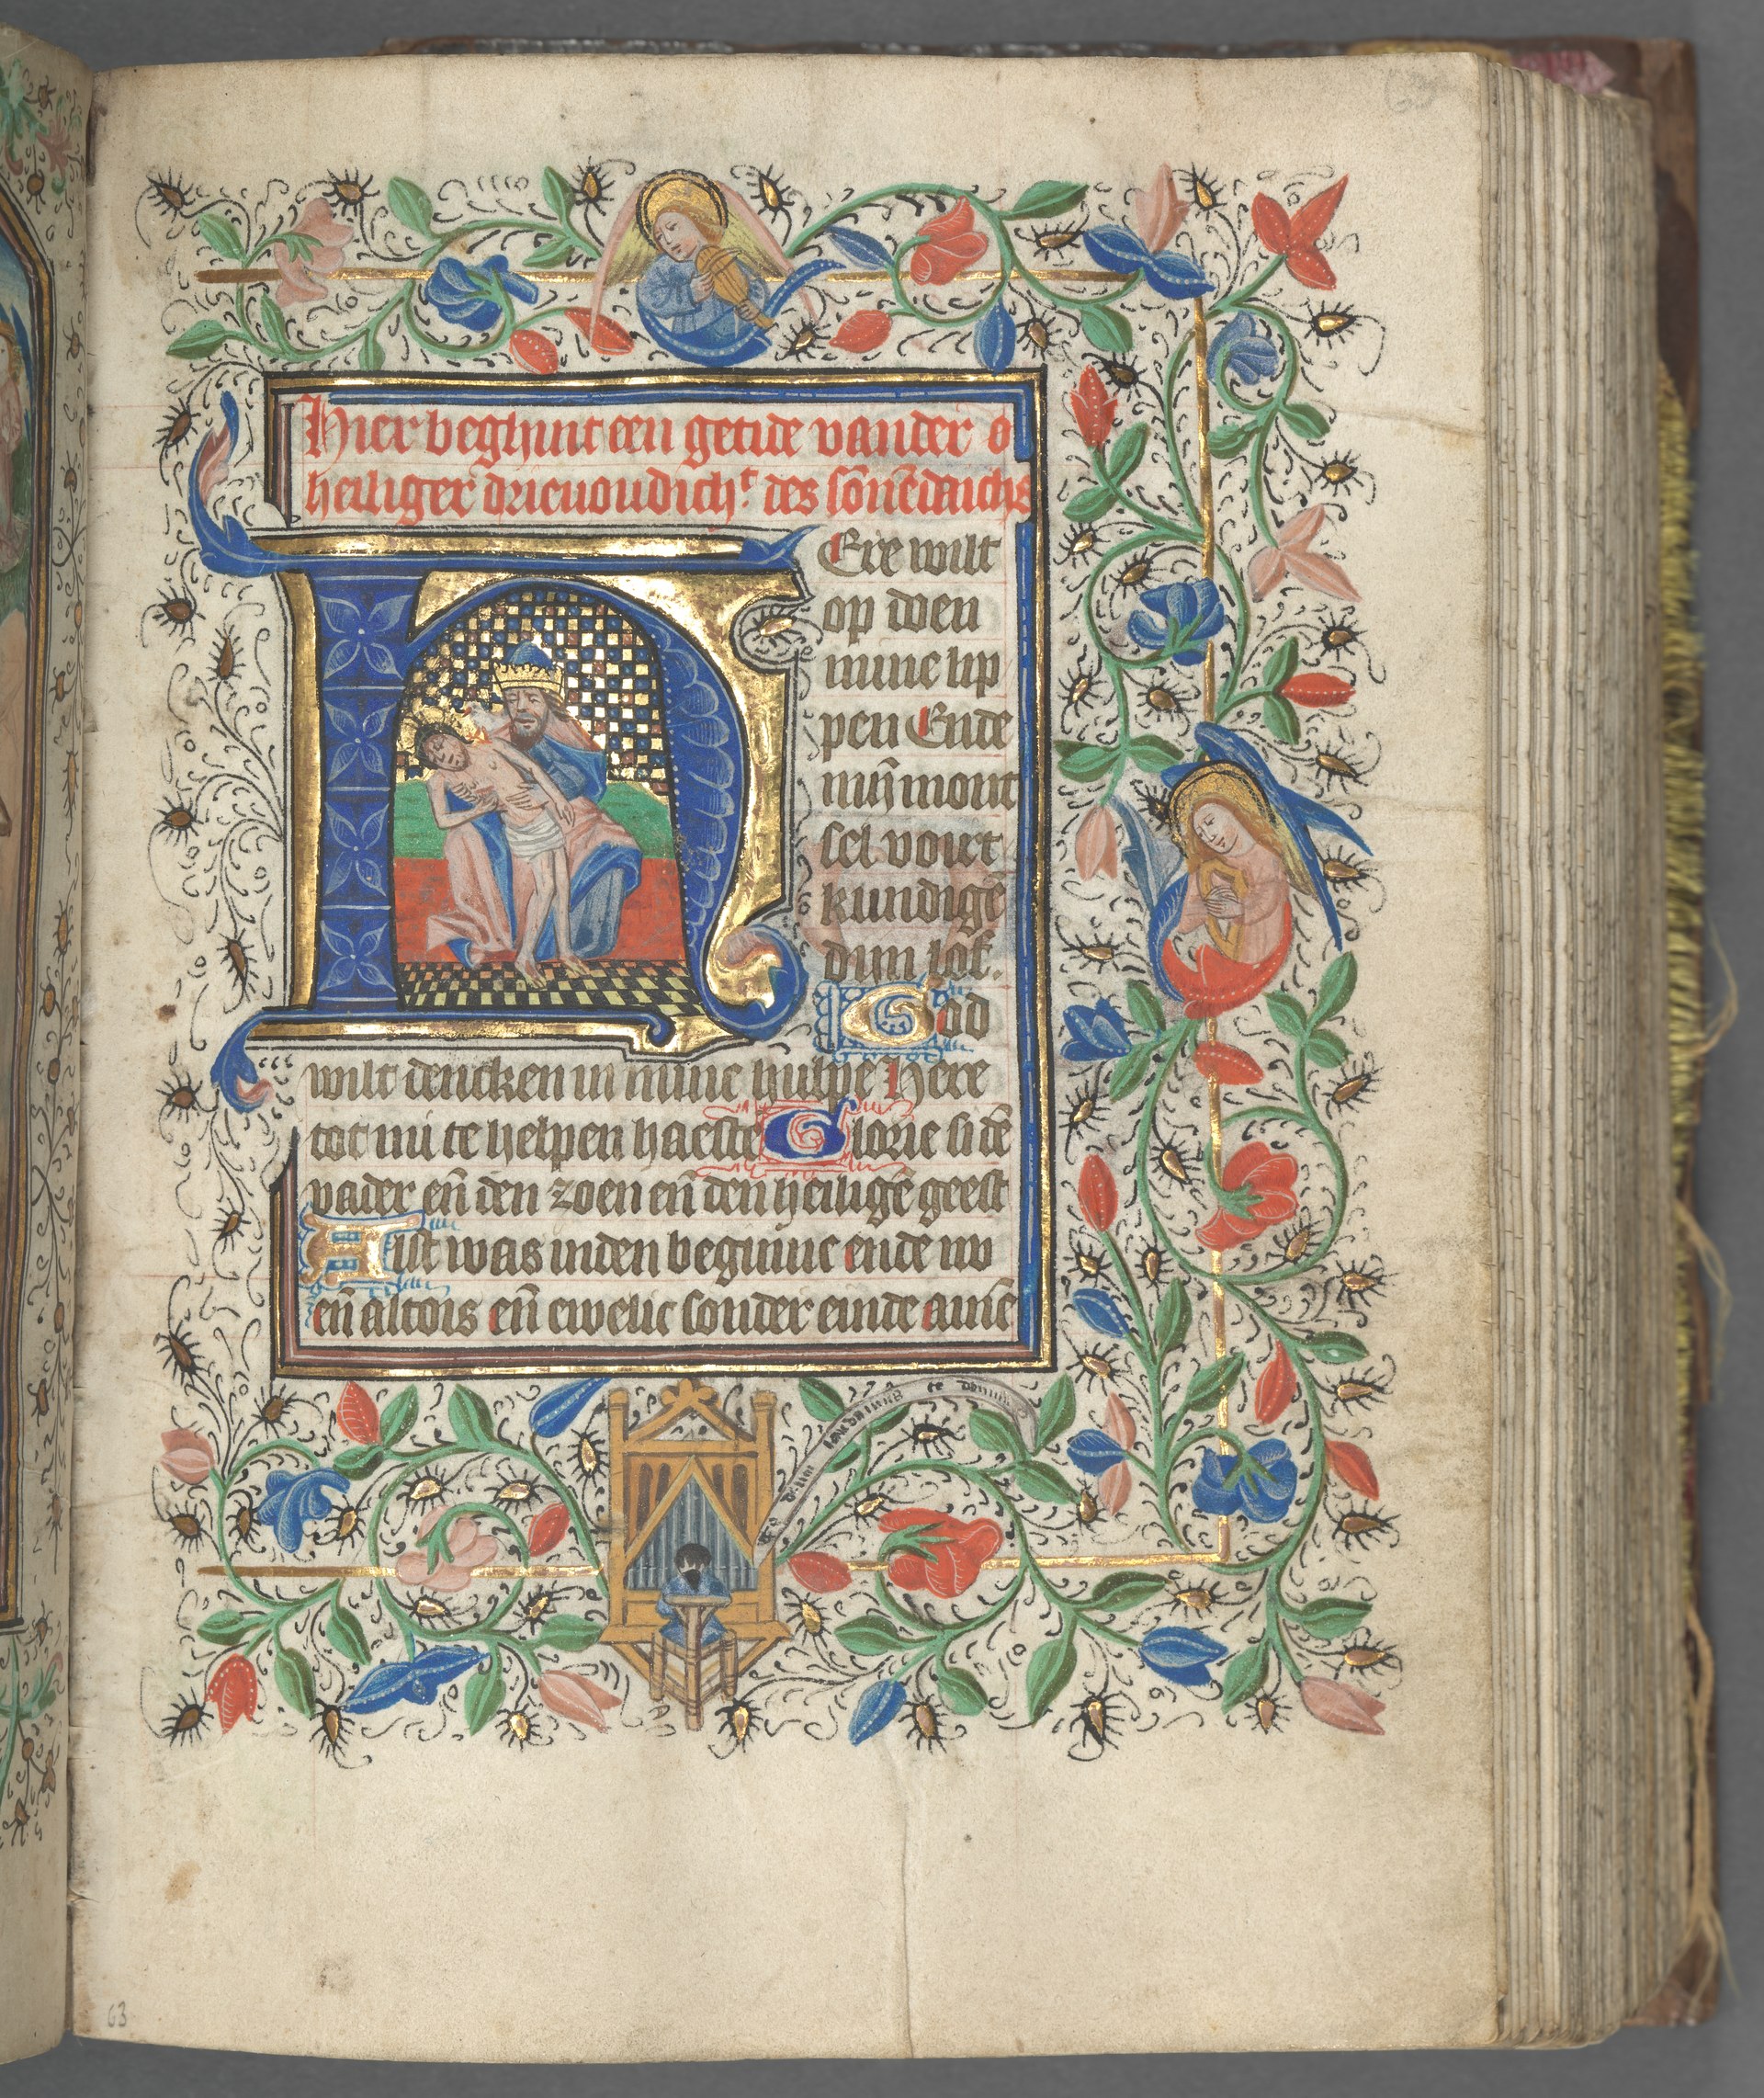 63
Hier beghint een getide vander o
heiliger drievoudich.t des sōnēdaichs
HEre wilt
op doen
mine lip
pen Ende
mijn mont
sel vort
kundigē
dijn lof.
God
wilt dencken in mine hulpe Here
tot mi te helpen haeste Glorie si dē
vader eñ den zoen eñ den heiligē geest
Alst was inden beginne ende nv
eñ altois eñ ewelic sonder einde amē
te deum laudamus te dominū
63